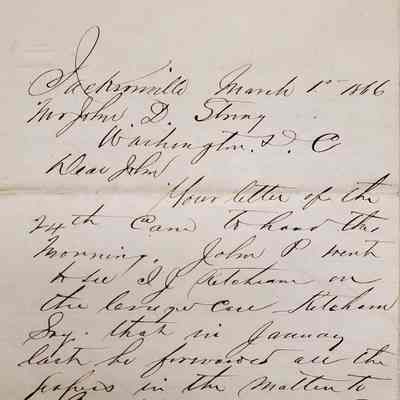 Jacksonville March 1st 1866
Mr John. D. Strong
Washington. D. C
Dear John
Your letter of the
24th Came to hand this
Morning. John P went
to see I J Ketcham on
the case Ketcham
Say. that in January
last he forwarded all the
papers in the Matter to